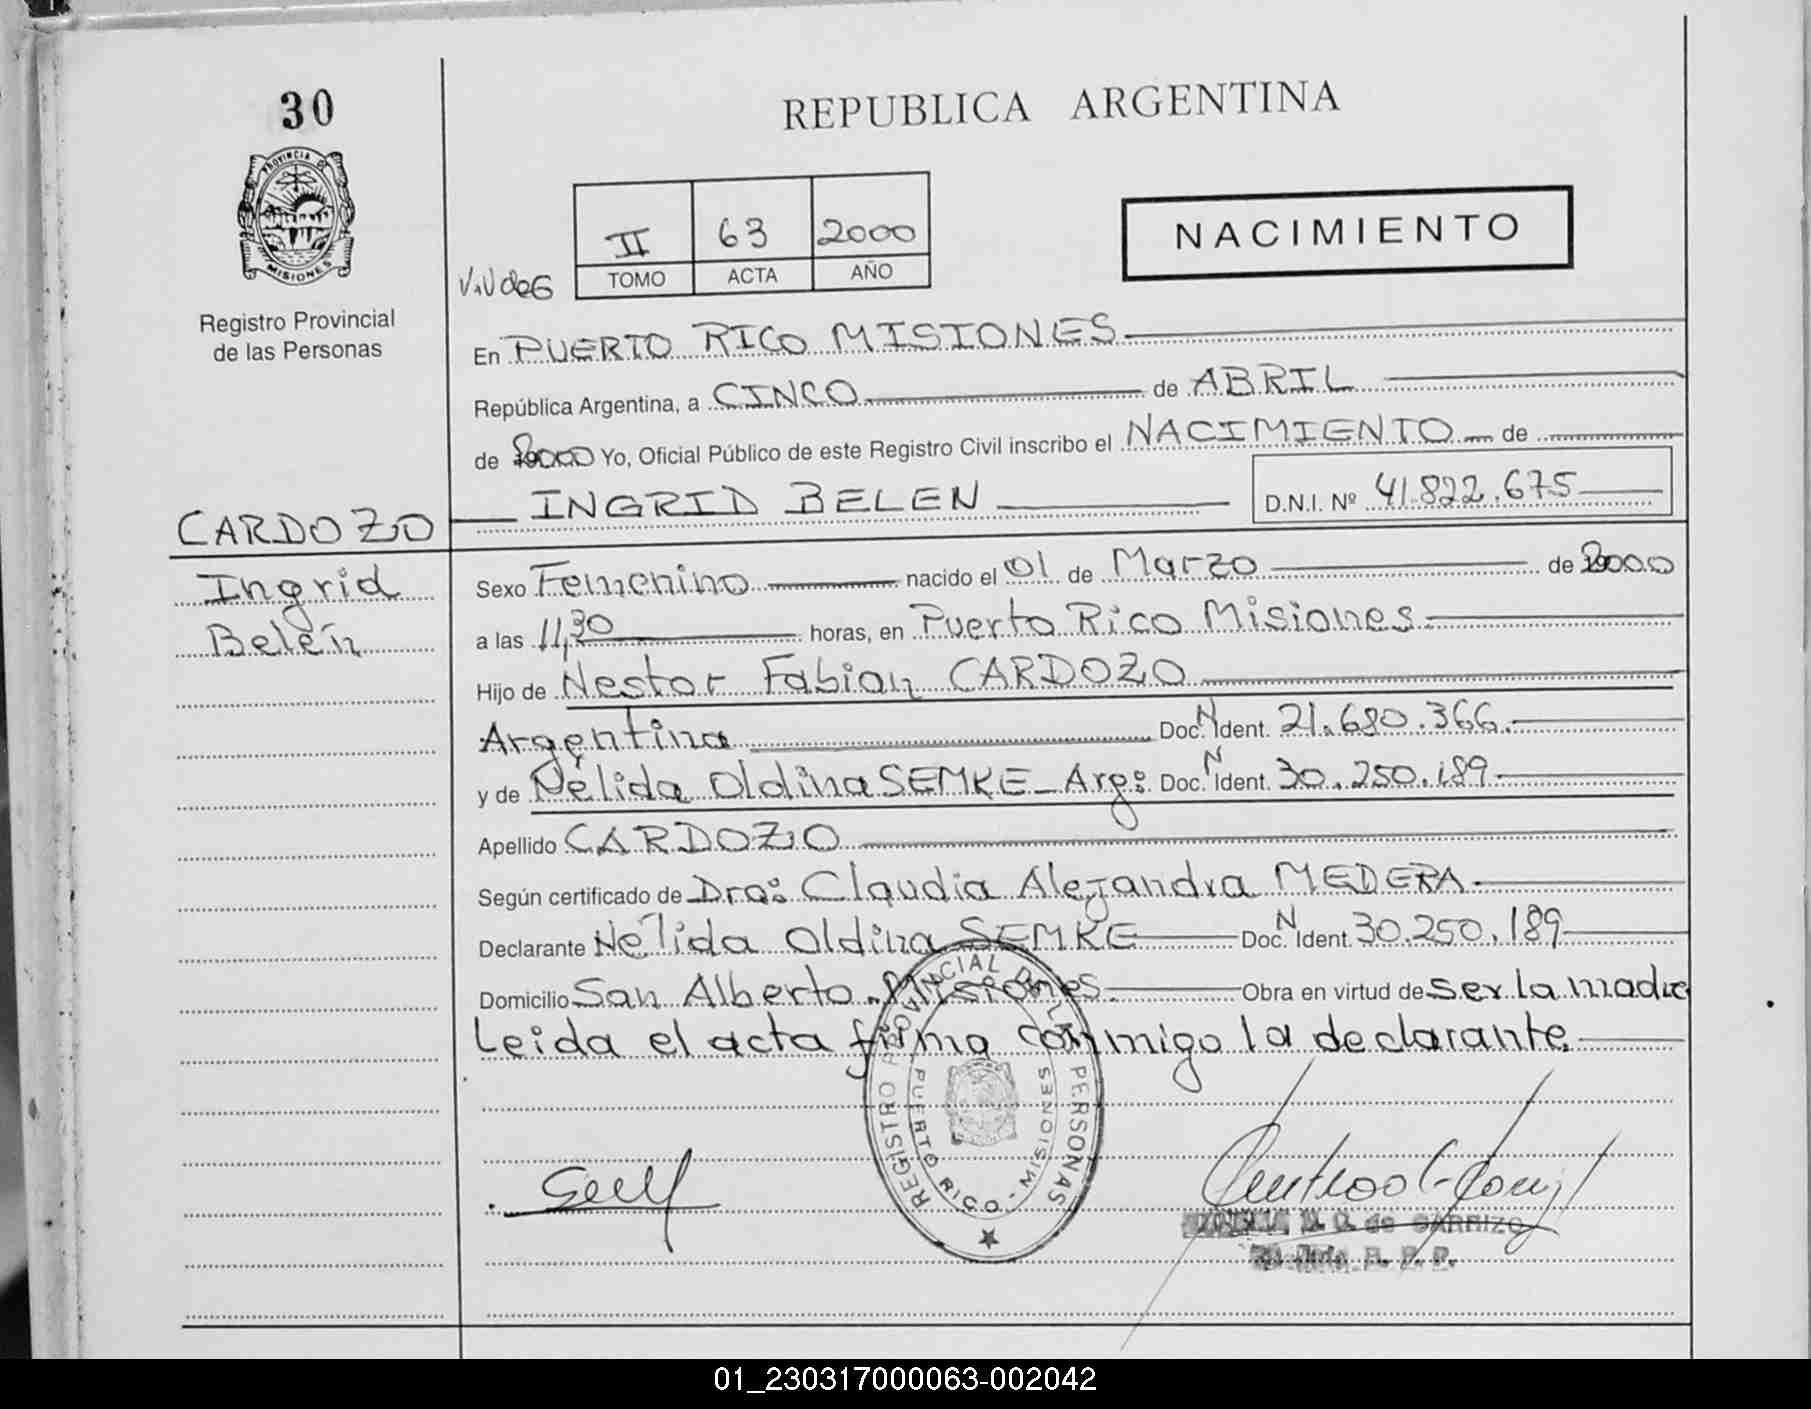 30
PROVINCIA DE
MISIONES
Registro Provincial
de las Personas
REPUBLICA ARGENTINA
II 63 2000
TOMO ACTA AÑO
NACIMIENTO
En PUERTO RICO MISIONES
República Argentina, a CINCO de ABRIL
de 2000 Yo, Oficial Público de este Registro Civil inscribo el NACIMIENTO de
INGRID BELEN D.N.I. Nº 41.822.675
CARDOZO
Ingrid
Belén
Sexo Femenino nacido el 01 de Marzo de 2000
a las 11,30 horas, en Puerto Rico Misiones
Hijo de Nestor Fabian CARDOZO
Argentina Doc. N Ident. 21.680.366.
y de Nélida Oldina SEMKE - Arg: Doc. N Ident. 30.250.189
Apellido CARDOZO
Según certificado de Dra: Claudia Alejandra MEDERA
Declarante Nélida Oldina SEMKE Doc. N Ident. 30.250.189
Domicilio San Alberto. Misiones Obra en virtud de ser la madre
Leida el acta firma conmigo la declarante.
REGISTRO PROVINCIAL DE LAS PERSONAS
PUERTO RICO - MISIONES
de CARRIZO
R. P. P.
01_230317000063-002042